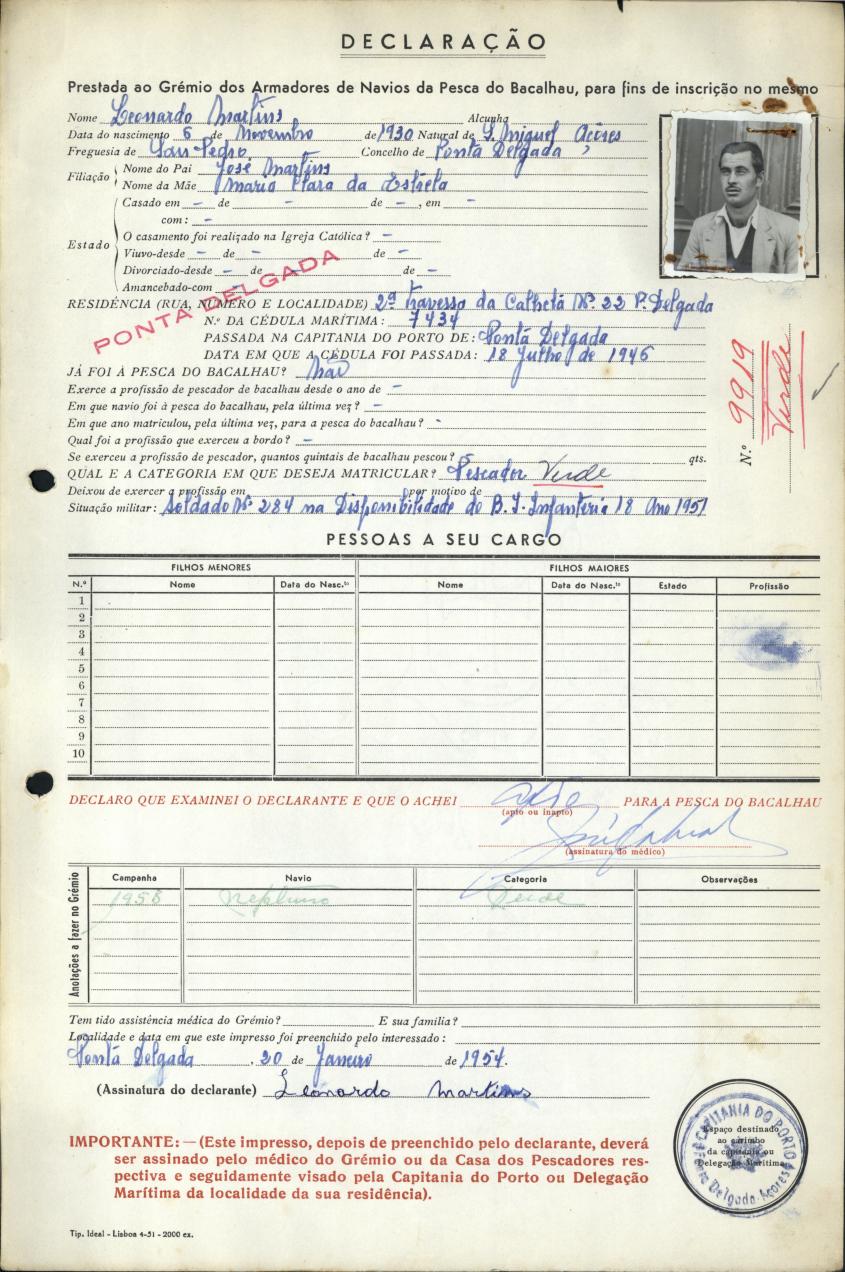 DECLARAÇÃO
Prestada ao Grémio dos Armadores de Navios da Pesca do Bacalhau, para fins de inscrição no mesmo
Nome Leonardo Martins Alcunha
Data do nascimento 6 de Novembro de 1930 Natural de S. Miguel Açôres
Freguesia de San Pedro Concelho de Ponta Delgada
Filiação
Nome do Pai José Martins
Nome da Mãe Maria Clara da Estrela
Estado
Casado em - de - de - , em -
com: -
O casamento foi realizado na Igreja Católica? -
Viuvo-desde - de - de -
Divorciado-desde - de - de -
Amancebado-com -
PONTA DELGADA
RESIDÊNCIA (RUA, NÚMERO E LOCALIDADE) 2ª travessa da Calhetá Nº. 22 P. Delgada
N.º DA CÉDULA MARÍTIMA: 7434
PASSADA NA CAPITANIA DO PORTO DE: Pontá Delgada
DATA EM QUE A CÉDULA FOI PASSADA: 18 Julho de 1946
JÁ FOI À PESCA DO BACALHAU? Não
Exerce a profissão de pescador de bacalhau desde o ano de -
Em que navio foi à pesca do bacalhau, pela última vez? -
Em que ano matriculou, pela última vez, para a pesca do bacalhau? -
Qual foi a profissão que exerceu a bordo? -
Se exerceu a profissão de pescador, quantos quintais de bacalhau pescou? - qts.
QUAL E A CATEGORIA EM QUE DESEJA MATRICULAR? Pescador Verde
Deixou de exercer a profissão em por motivo de
Situação militar: Soldado Nº 284 na Disponibilidade do B. I. Infanteria 18 Ano 1951
N.º 9919
Verde
PESSOAS A SEU CARGO
FILHOS MENORES FILHOS MAIORES
N.º Nome Data do Nasc.to Nome Data do Nasc.to Estado Profissão
1
2
3
4
5
6
7
8
9
10
DECLARO QUE EXAMINEI O DECLARANTE E QUE O ACHEI apto PARA A PESCA DO BACALHAU
(apto ou inapto)
(assinatura do médico)
Anotações a fazer no Grémio
Campanha Navio Categoria Observações
Neptuno Verde
Tem tido assistência médica do Grémio? E sua família?
Localidade e data em que este impresso foi preenchido pelo interessado:
Pontá Delgada, 20 de Janeiro de 1954.
(Assinatura do declarante) Leonardo Martins
CAPITANIA DO PORTO
Ponta Delgada-Açores
Espaço destinado
ao carimbo
da capitania ou
Delegação Marítima
IMPORTANTE: — (Este impresso, depois de preenchido pelo declarante, deverá
ser assinado pelo médico do Grémio ou da Casa dos Pescadores res-
pectiva e seguidamente visado pela Capitania do Porto ou Delegação
Marítima da localidade da sua residência).
Tip. Ideal - Lisboa 4-51 - 2000 ex.